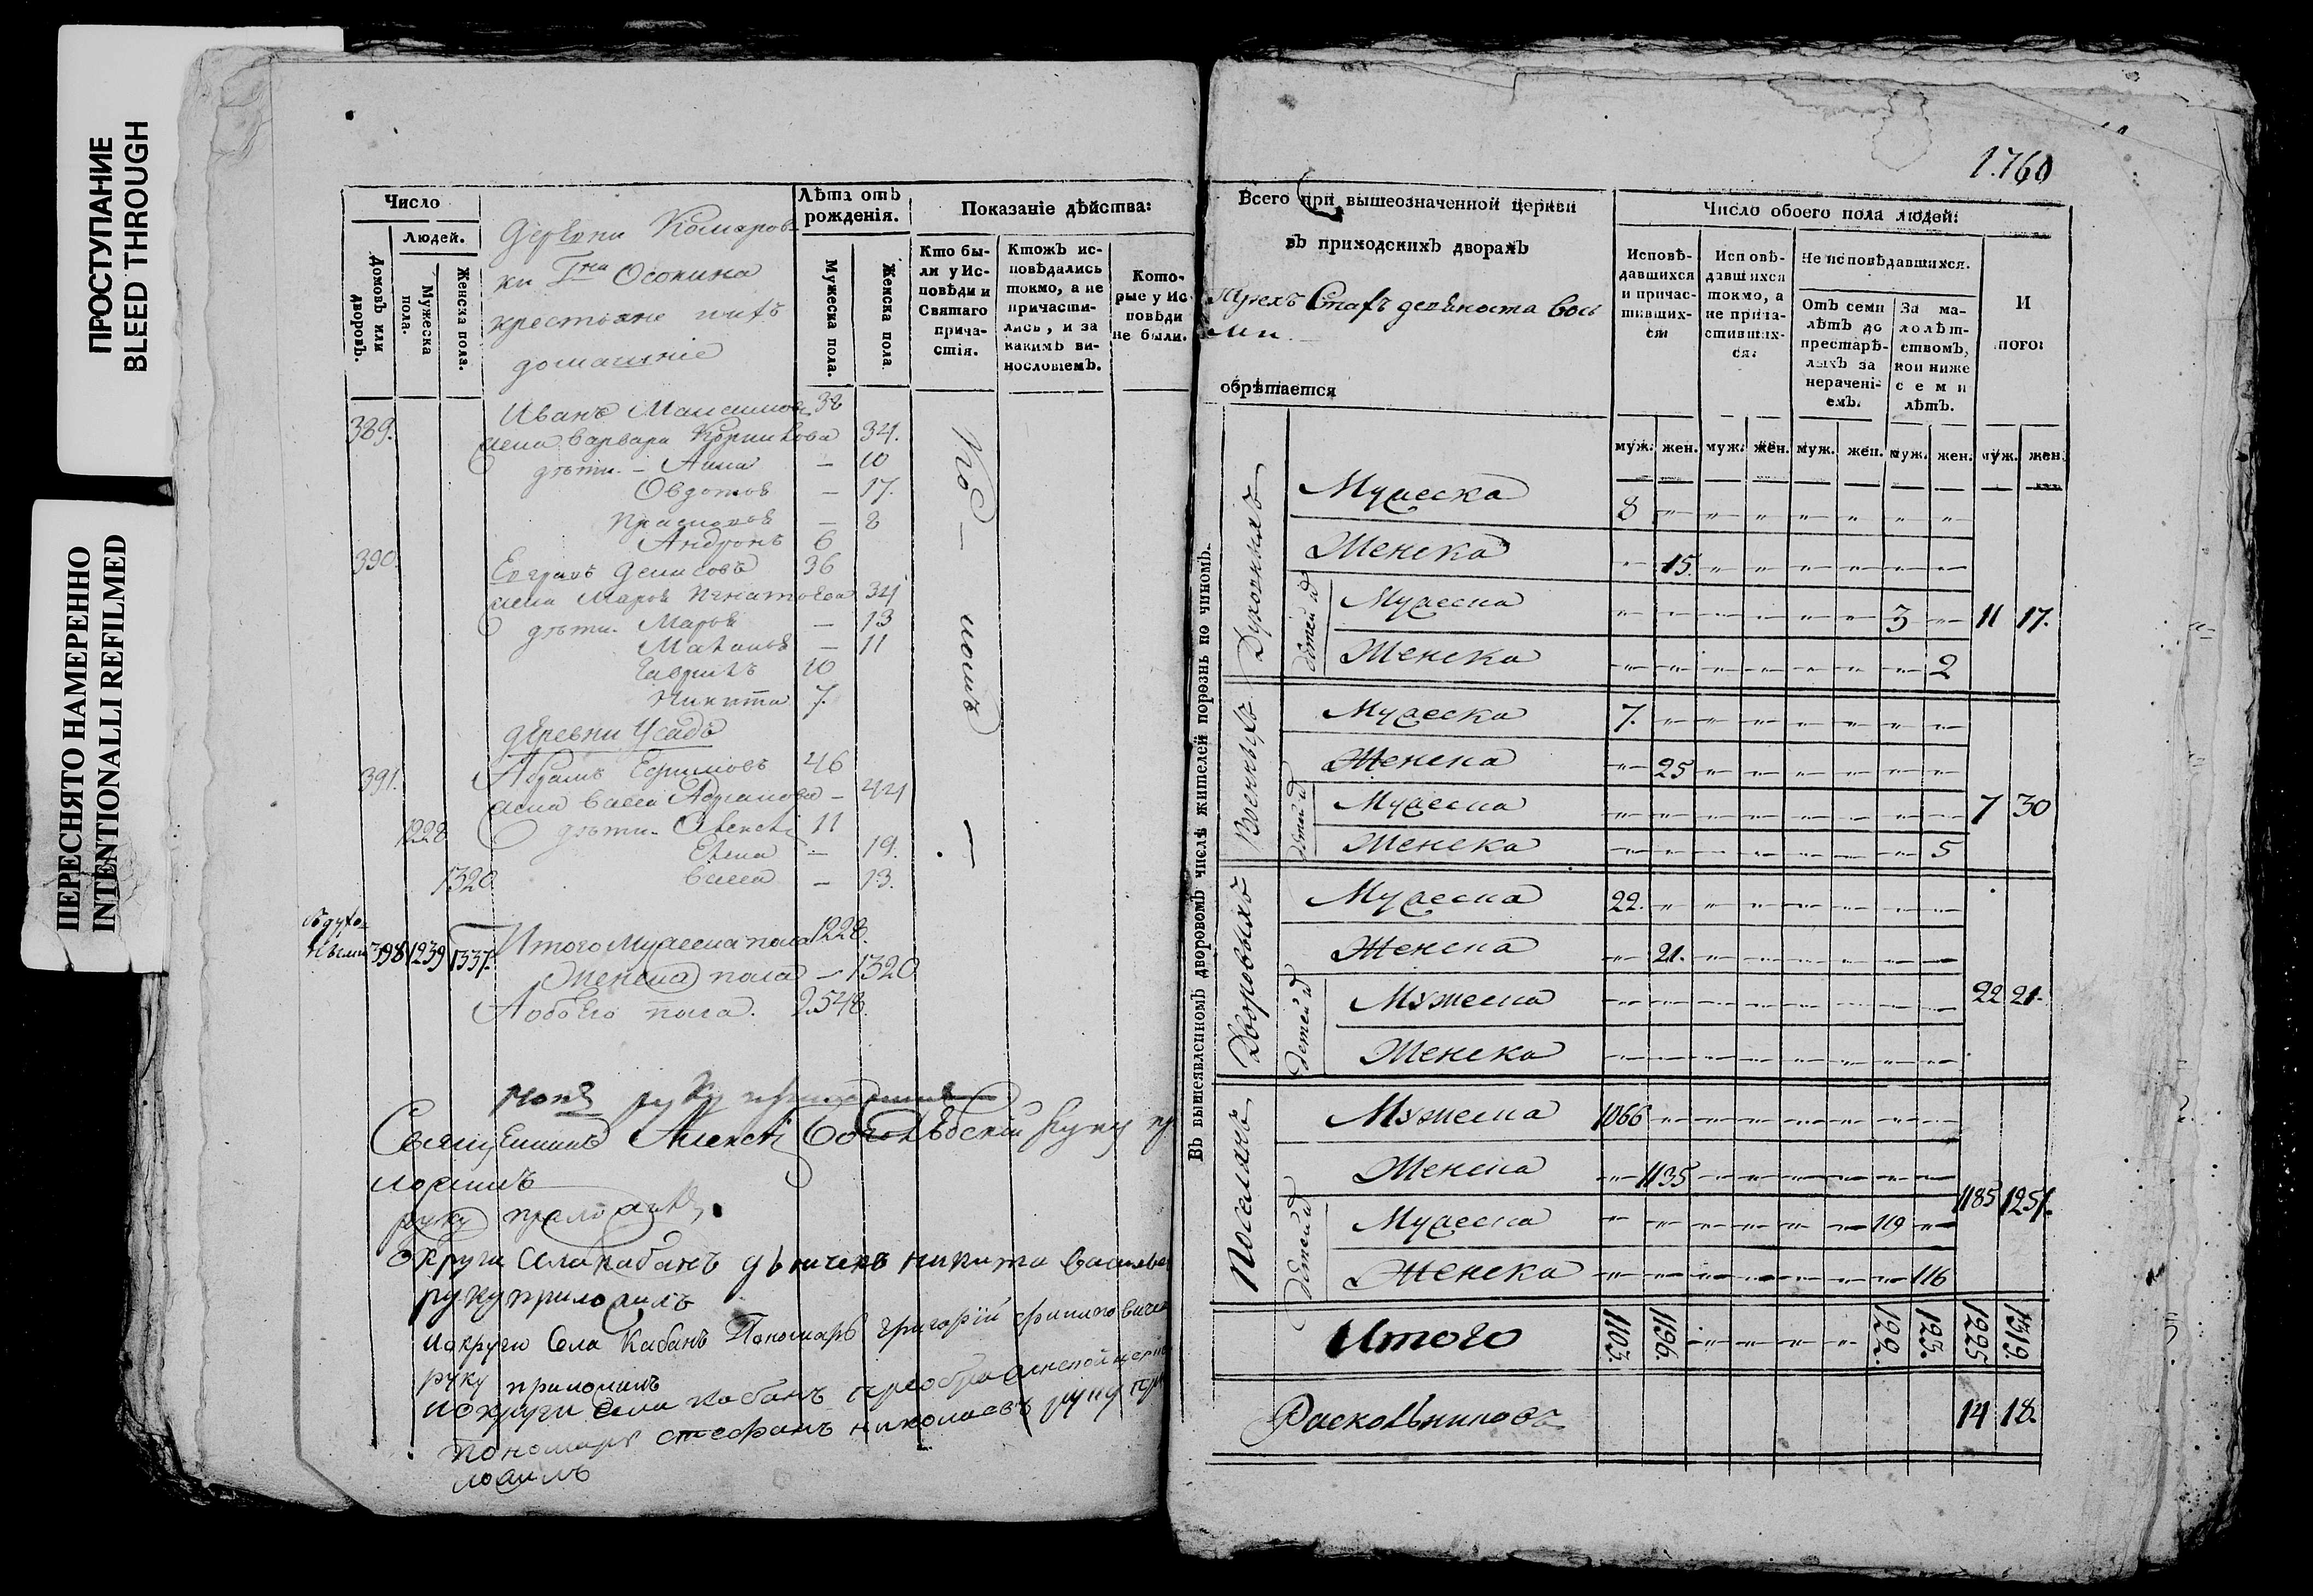 ПРОСТУПАНИЕ
BLEED THROUGH
ПЕРЕСНЯТО НАМЕРЕННО
INTENTIONALLI REFILMED
Число
Людей.
Домовъ или дворовъ.
Мужеска пола.
Женска пола.
Лѣта отъ рожденія.
Мужеска пола.
Женска пола
Показаніе дѣйства:
Кто были у Исповѣди и Святаго причастія.
Ктожъ исповѣдались токмо, а не причастились, и за какимъ винословіемъ.
Которые у Исповѣди не были.
деревни Комаров
ки Гна Осокина
крестьяне
домашніе
389. Иванъ 38
жена Варвара 34.
дѣти — Анна — 10
17.
— 8
Андронъ 6
390. Денисовъ 36
жена Марья Игнатьева 34
дѣти. Марья — 13
Маланья — 11
Гаврилъ 10
Никита 7.
деревни Усадъ
391. Абрамъ Ефимовъ 46
жена Васса — 44
1228 дѣти. Алексѣй 11
Елена — 19.
1320 Васса — 13.
съ духо-
ными 398 1239 1337. Итого Мужеска пола 1228.
Женска пола — 1320
А обоего пола. 2548.
Священникъ Алексѣй руку при
ложилъ
руку
округи села кабанъ дьячекъ никита васильевъ
руку приложилъ
округи Села Кабанъ Пономарь григорій филиповъ
руку приложилъ
округи села кабанъ преображенской церкви
пономарь стефанъ николаевъ руку при
ложилъ
1.760
Всего при вышеозначенной церкви
въ приходскихъ дворахъ
трехъ Стахъ девяноста вось
ми
обрѣтается
Число обоего пола людей:
Исповѣдавшихся и причастившихся
Исповѣдавшихся токмо, а не причастившихся:
Не исповѣдавшихся.
Отъ семи лѣтъ до престарѣлыхъ за нераченіемъ.
За малолѣтствомъ, кои ниже семи лѣтъ.
И
того:
муж. жен. муж. жен. муж. жен. муж. жен. муж. жен.
Въ вышеявленномъ дворовомъ числѣ жителей порознь по чиномъ.
Духовныхъ
Мужеска 8
Женска 15.
дѣтей
Мужеска 3 11 17.
Женска 2
Военныхъ
Мужеска 7.
Женска 25
дѣтей
Мужеска 7 30
Женска 5
Дворовыхъ
Мужеска 22.
Женска 21.
детей
Мужеска 22 21.
Женска
Поселянъ
Мужеска 1066
Женска 1135
детей
Мужеска 119 1185 1251.
Женска 116
Итого 1103. 1196. 122. 123. 1225 1319.
Раскольниковъ 14 18.